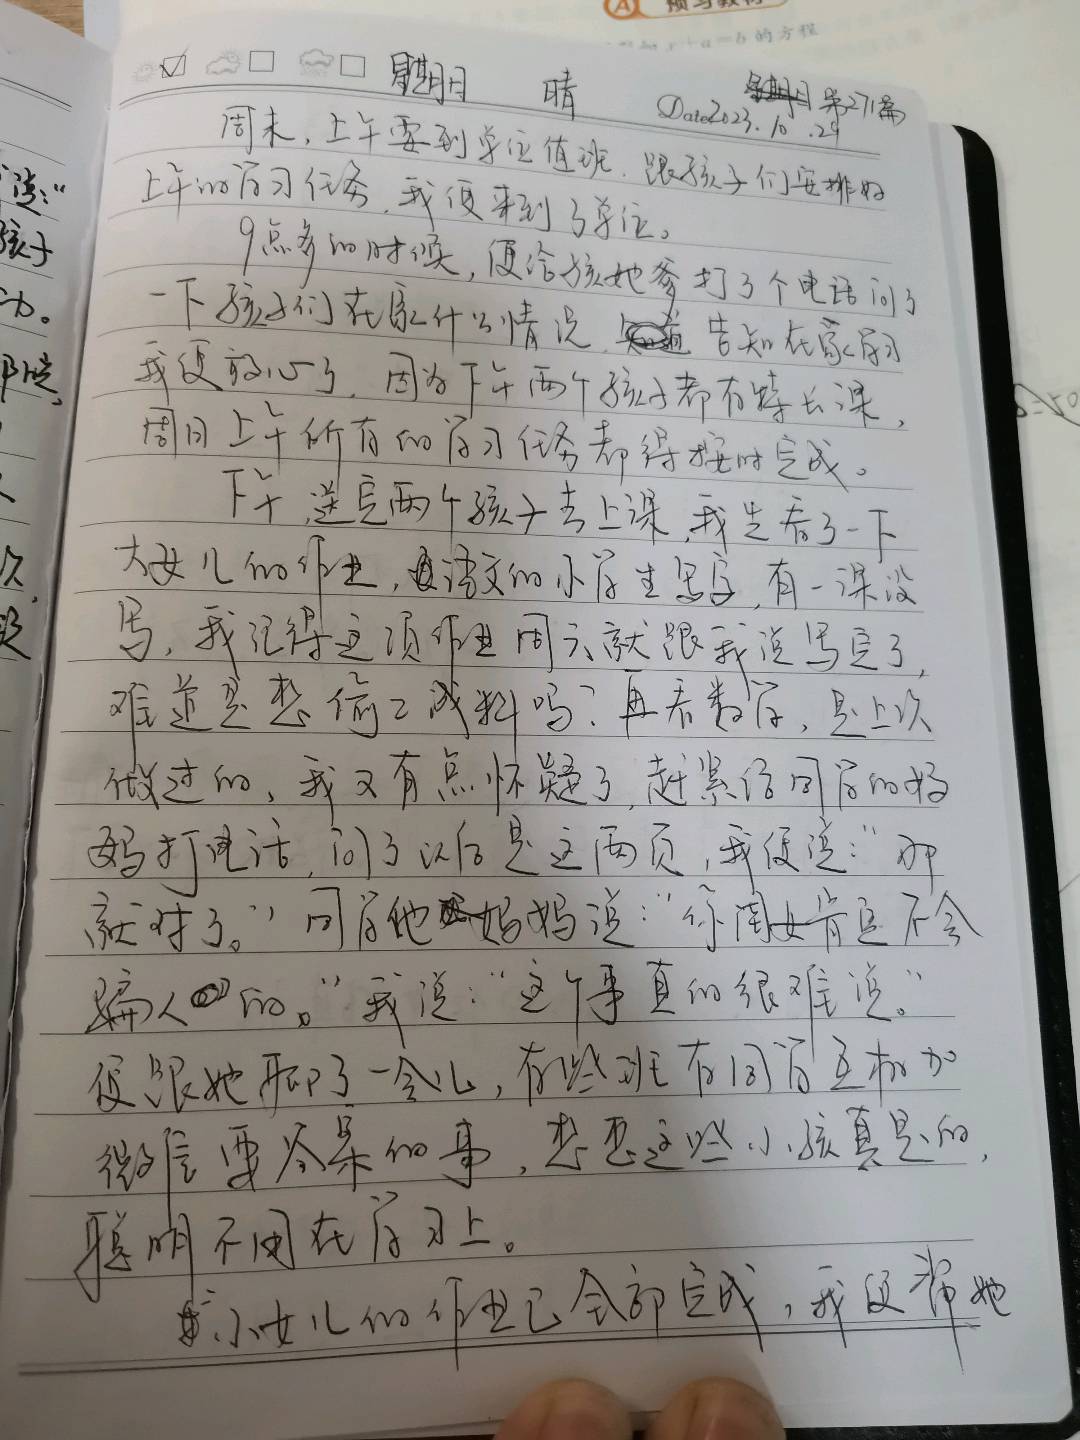 A 预习教材
x+a=b的方程
星期日 晴 第271篇
Date 2023.10.29
周末，上午要到单位值班，跟孩子们安排好
上午的学习任务，我便来到了单位。
9点多的时候，便给孩她爹打了个电话问了
一下孩子们在家什么情况，告知在家学习
我便放心了，因为下午两个孩子都有特长课，
周日上午所有的学习任务都得按时完成。
下午，送完两个孩子去上课，我先看了一下
大女儿的作业，语文的小学生写字，有一课没
写，我记得这项作业周六就跟我说写完了，
难道是想偷工减料吗？再看数学，是上次
做过的，我又有点怀疑了，赶紧给同学的妈
妈打电话，问了以后是这两页，我便说：“那
就对了。”同学他妈妈说：“你闺女肯定不会
骗人的。”我说：“这个事真的很难说。”
便跟她聊了一会儿，有些班有同学互相加
微信要答案的事，想想这些小孩真是的，
聪明不用在学习上。
小女儿的作业已全部完成，我便带她